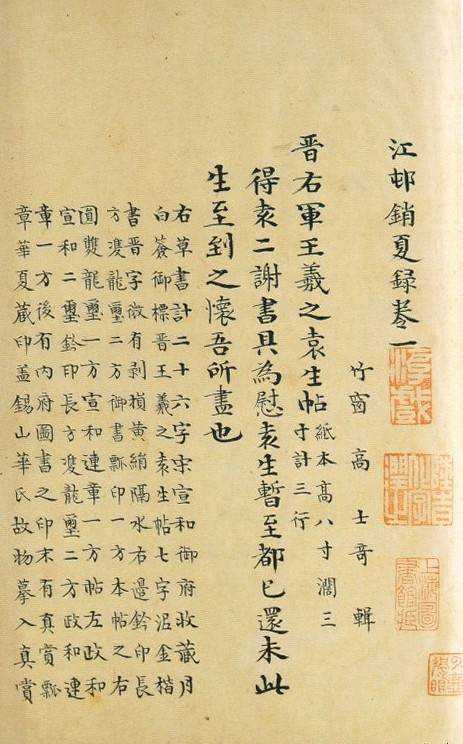 江邨銷夏録卷一
竹窗 高士奇 輯
晉右軍王羲之袁生帖 紙本髙八寸濶三
寸計三行
得袁二謝書具為慰袁生暫至都已還未此
生至到之懷吾所盡也
右草書計二十六字宋宣和御府收藏月
白簽御標晉王羲之袁生帖七字泥金楷
書晉字微有剥損黄絹隔水右邊鈐印長
方雙龍璽二方御書瓢印一方本帖之右
圓雙龍璽一方宣和連章一方帖左政和
宣和二璽鈐印長方雙龍璽二方政和連
章一方後有内府圖書之印末有真賞瓢
章華夏藏印盖錫山華氏故物摹入真賞
上海圖書館藏